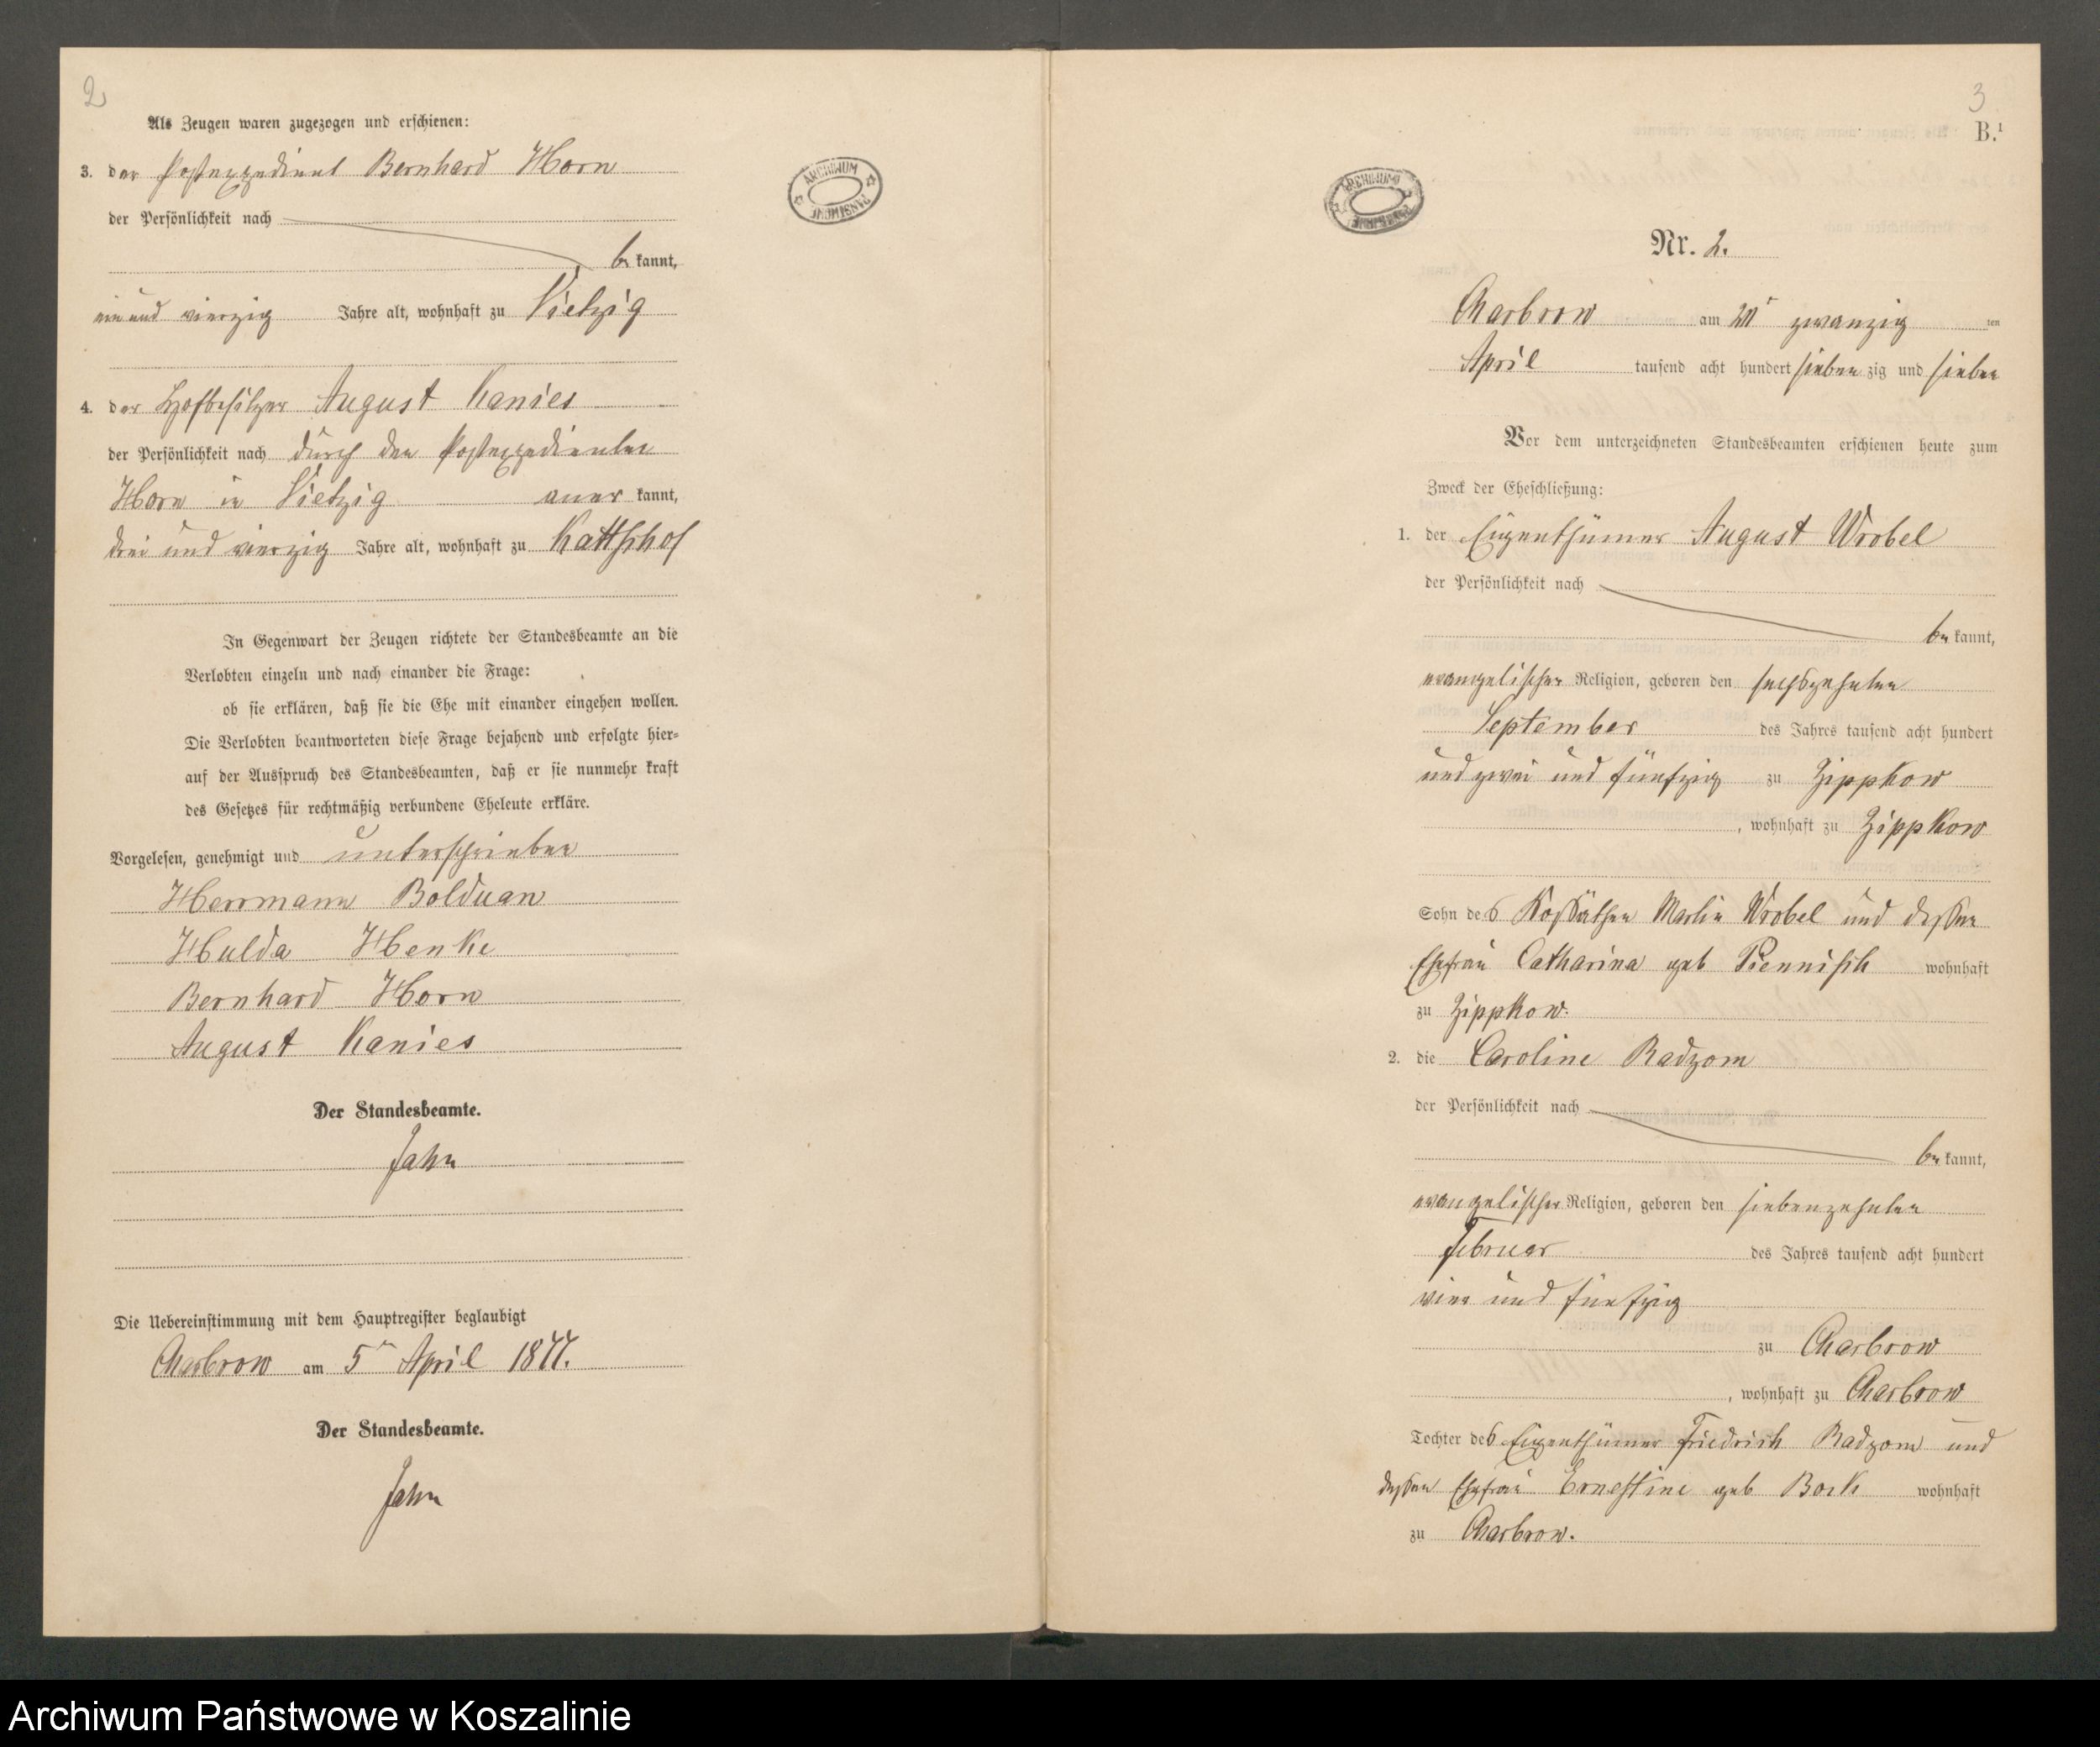 2
Als Zeugen waren zugezogen und erschienen:
3. der Postexpedient Bernhard Horn
der Persönlichkeit nach
be kannt,
ein und vierzig Jahre alt, wohnhaft zu Vietzig
4. der Hofbesitzer August Kanies
der Persönlichkeit nach durch den Postexpedienten
Horn in Vietzig aner kannt,
drei und vierzig Jahre alt, wohnhaft zu Kattshof
In Gegenwart der Zeugen richtete der Standesbeamte an die
Verlobten einzeln und nach einander die Frage:
ob sie erklären, daß sie die Ehe mit einander eingehen wollen.
Die Verlobten beantworteten diese Frage bejahend und erfolgte hier-
auf der Ausspruch des Standesbeamten, daß er sie nunmehr kraft
des Gesetzes für rechtmäßig verbundene Eheleute erkläre.
Vorgelesen, genehmigt und unterschrieben
Herrmann Bolduan
Hulda Henke
Bernhard Horn
August Kanies
Der Standesbeamte.
Jahn
Die Uebereinstimmung mit dem Hauptregister beglaubigt
Charbrow am 5ten April 1877.
Der Standesbeamte.
Jahn
ARCHIWUM PAŃSTWOWE
3
B.1
ARCHIWUM PAŃSTWOWE
Nr. 2.
Charbrow am zwanzig ten
April tausend acht hundert sieben zig und sieben
Vor dem unterzeichneten Standesbeamten erschienen heute zum
Zweck der Eheschließung:
1. der Eigenthümer August Wrobel
der Persönlichkeit nach
be kannt,
evangelischer Religion, geboren den sechszehnten
September des Jahres tausend acht hundert
und zwei und fünfzig zu Zippkow
, wohnhaft zu Zippkow
Sohn des Kossäthen Martin Wrobel und dessen
Ehefrau Catharina geb wohnhaft
zu Zippkow.
2. die Caroline Radzom
der Persönlichkeit nach
be kannt,
evangelischer Religion, geboren den siebenzehnten
Februar des Jahres tausend acht hundert
vier und fünfzig
zu Charbrow
, wohnhaft zu Charbrow
Tochter des Eigenthümer Friedrich Radzom und
dessen Ehefrau Ernestine geb Bock wohnhaft
zu Charbrow.
Archiwum Państwowe w Koszalinie